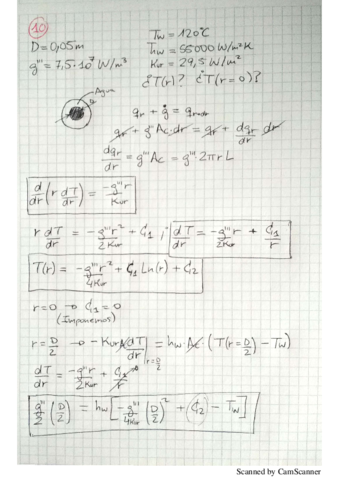 10
D = 0,05m
g''' = 7,5·10⁷ W/m³
Tw = 120ºC
hw = 55000 W/m²K
Kur = 29,5 W/m²
¿T(r)? ¿T(r=0)?
Agua
qr + ġ = qr+dr
qr + g''' Ac·dr = qr + dqr/dr dr
dqr/dr = g''' Ac = g''' 2πr L
d/dr (r dT/dr) = -g''' r/Kur
r dT/dr = -g''' r²/2Kur + C1 ; dT/dr = -g''' r/2Kur + C1/r
T(r) = -g''' r²/4Kur + C1 Ln(r) + C2
r=0 → C1 = 0
(Imponemos)
r = D/2 → -Kur A dT/dr |r=D/2 = hw Ac · (T(r=D/2) - Tw)
dT/dr = -g''' r/2Kur + C1/r
g'''/2 (D/2) = hw [-g'''/4Kur (D/2)² + C2 - Tw]
Scanned by CamScanner